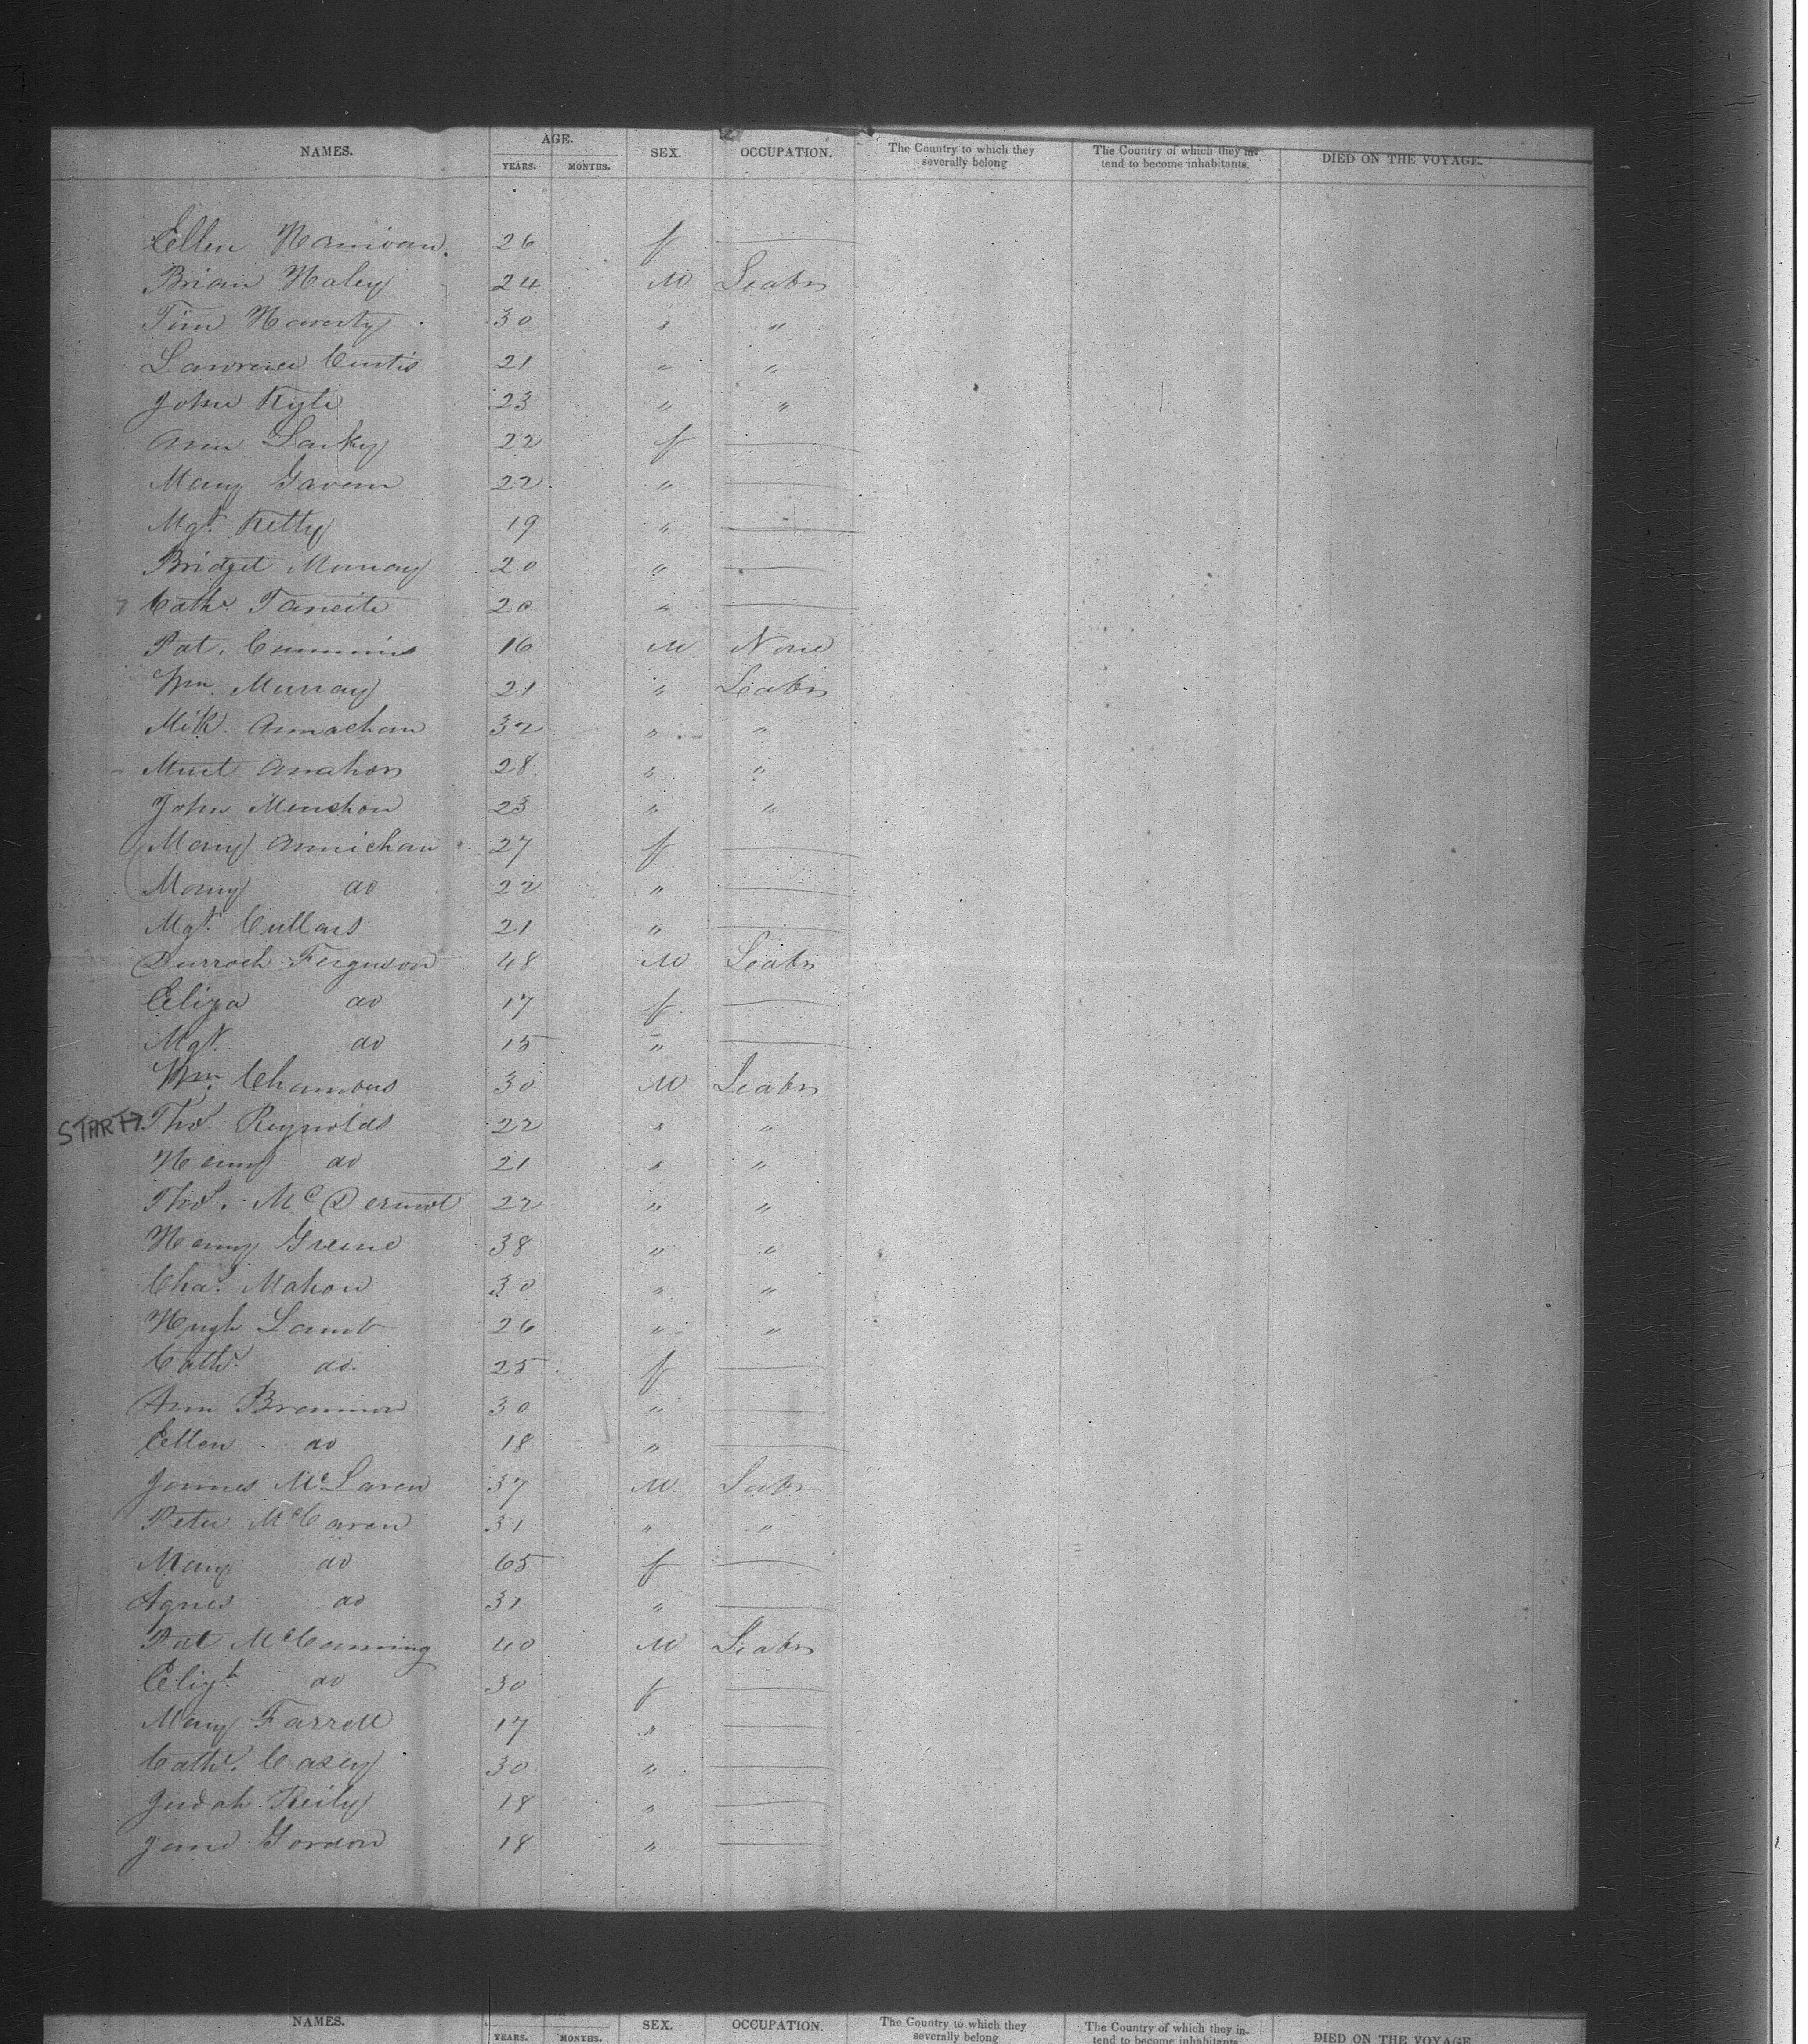 NAMES. AGE. YEARS. MONTHS. SEX. OCCUPATION. The Country to which they severally belong The Country of which they intend to become inhabitants. DIED ON THE VOYAGE.
Ellen 26 f
Brian Haley 24 M
Tim Haverty 30 " "
Lawrence Curtis 21 " "
John Kyle 23 " "
Ann Larky 22 f
Mary Gavern 22 "
Mgt Kelly 19 "
Bridget Murray 20 "
Cathe 20 "
Pat. Cummins 16 M None
Wm Murray 21 "
Mik. Annachan 32 " "
28 " "
John 23 " "
Mary Annichan 27 f
Mary do 22 "
Mgt. Cullars 21 "
Durroch Ferguson 48 M
Eliza do 17 f
Mgt do 15 "
Wm. Chambers 30 M
START→ Thos Reynolds 22 " "
Henry do 21 " "
Thos. McDermot 22 " "
Henry Greene 38 " "
Chas. Mahon 30 " "
Hugh Lamb 26 " "
Cathe do. 25 f
Ann Brannon 30 "
Ellen do 18 "
James McLaren 37 M
Peter McCaren 31 " "
Mary do 65 f
Agnes do 31 "
Pat McCanning 40 M
Elizh do 30 f
Mary Farrell 17 "
Cathe. Casey 30 "
Judah Reily 18 "
Jane Gordon 18 "
NAMES. YEARS. MONTHS. SEX. OCCUPATION. The Country to which they severally belong The Country of which they in- tend to become inhabitants. DIED ON THE VOYAGE